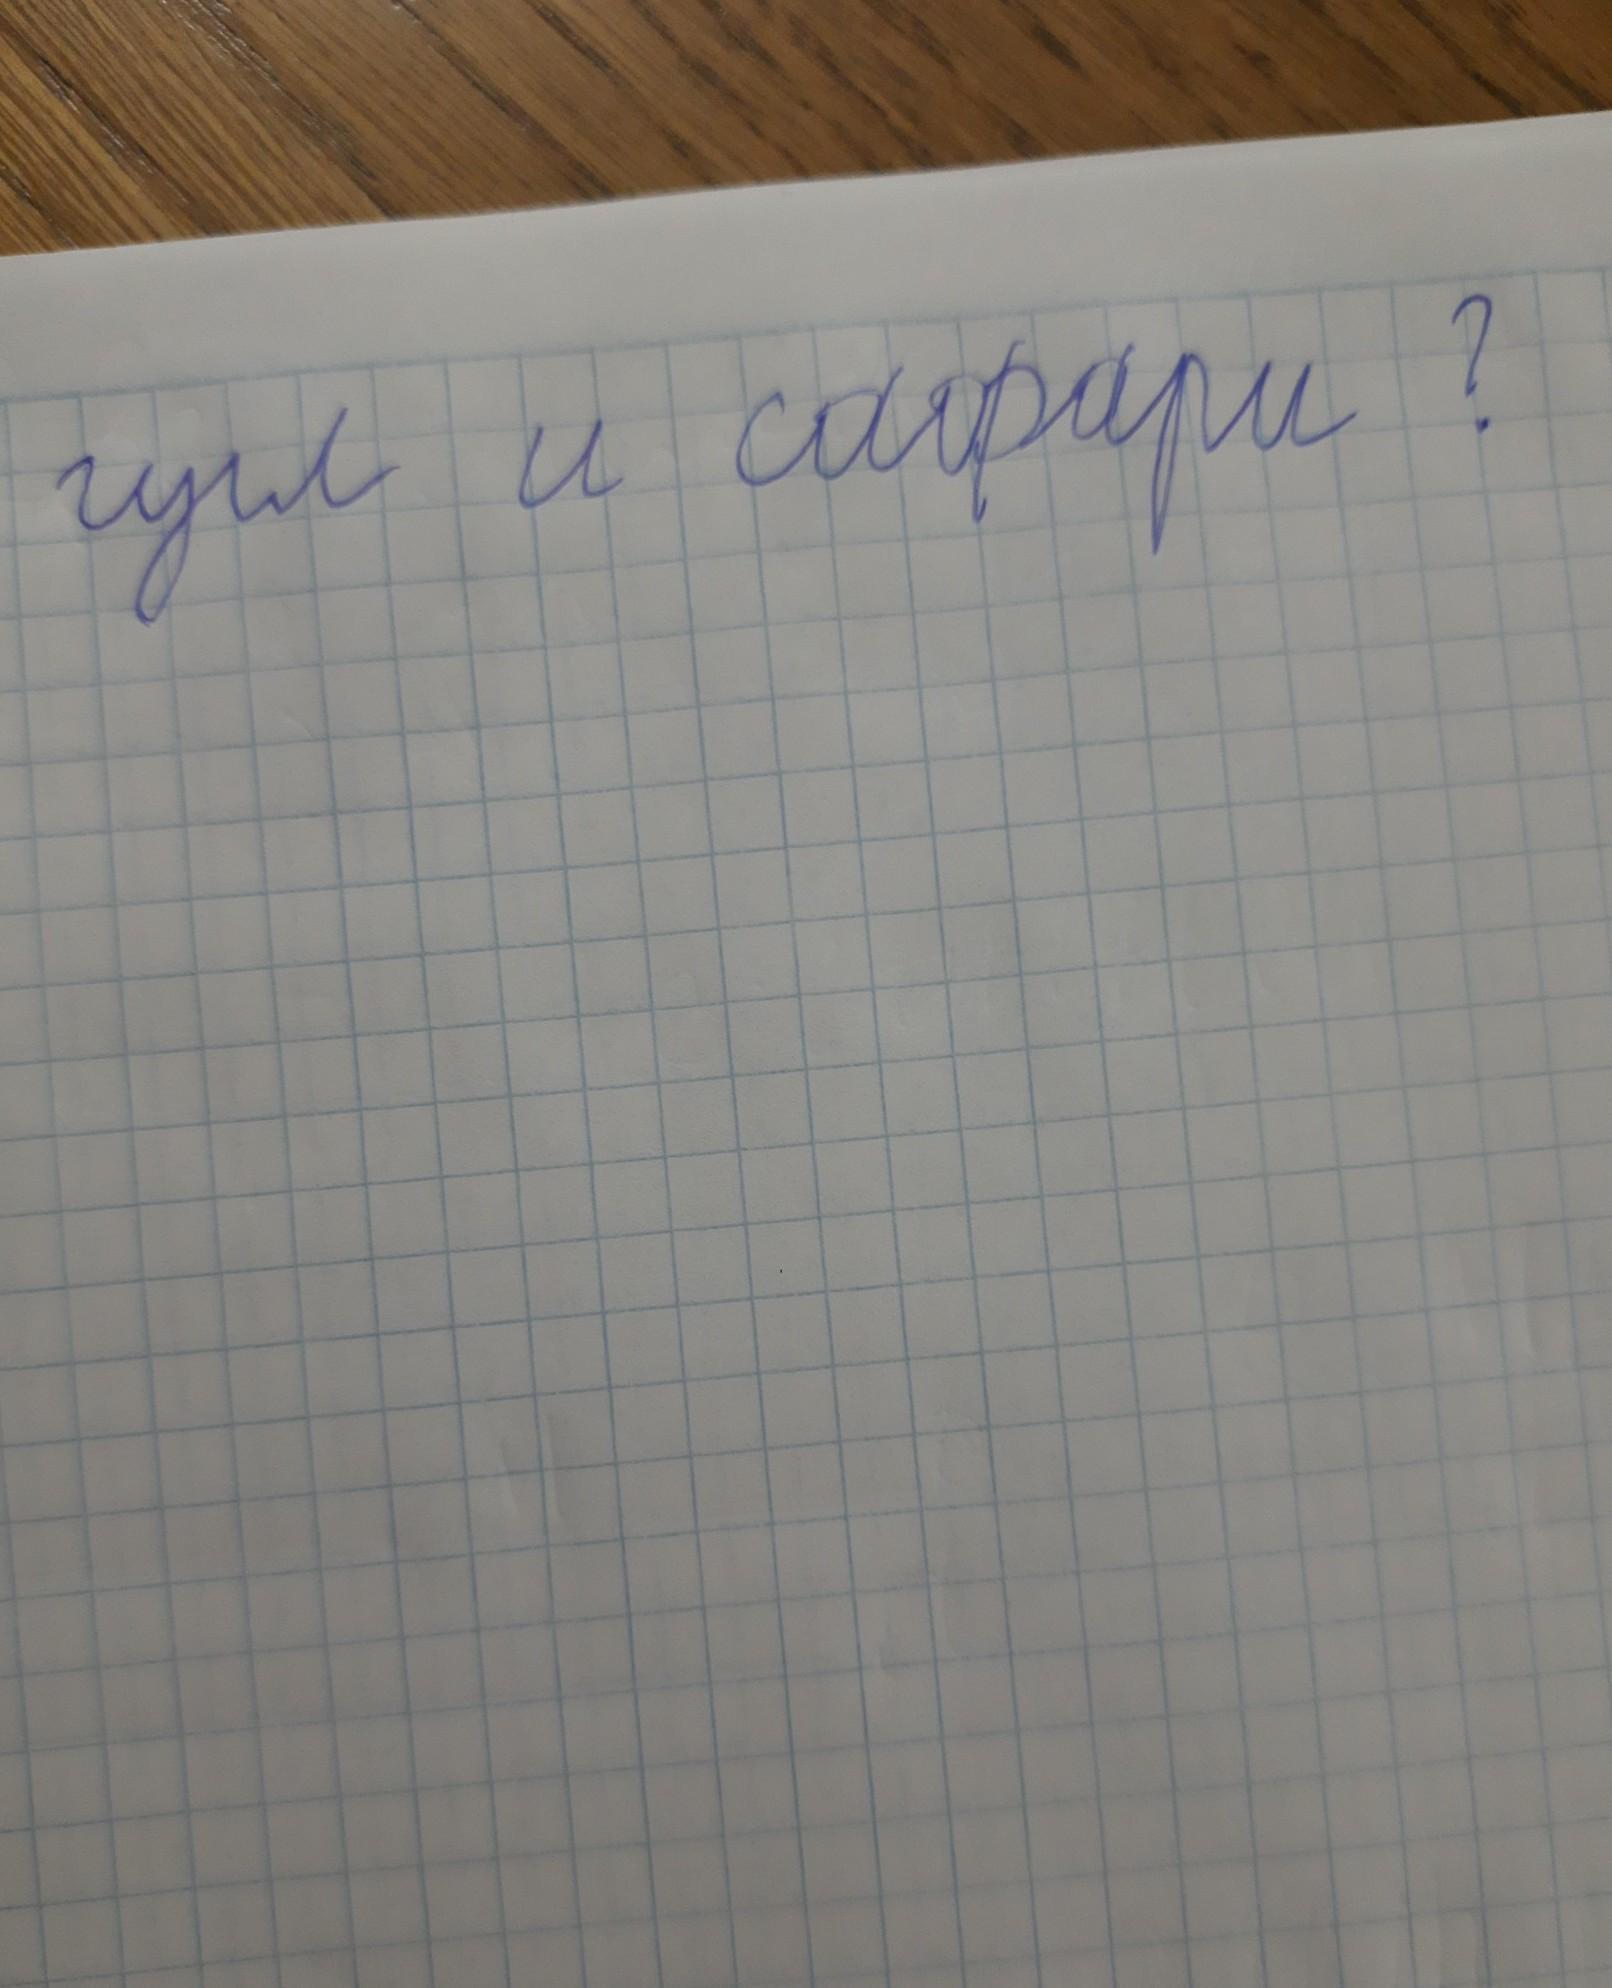 гугл и сафари ?